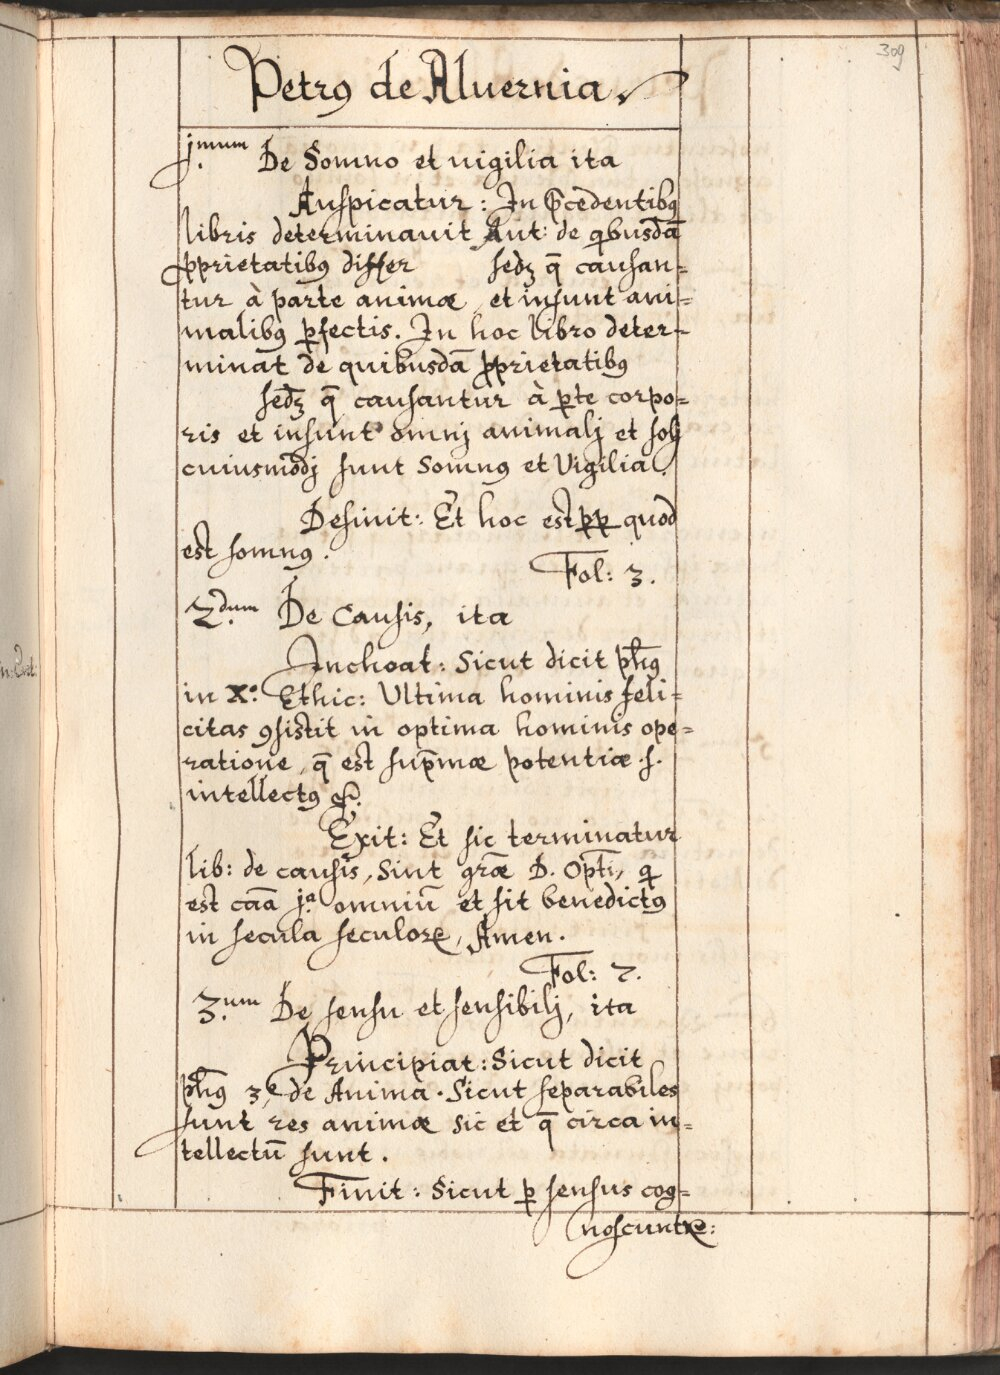 309
Petrꝰ de Aluernia
jmum De Somno et uigilia ita
Auspicatur: In p̄cedentibꝰ
libris determinauit Aut: de qbusdā
ꝓprietatibꝰ differ sedʒ q̄ causan=
tur à parte animæ, et insunt ani=
malibꝰ ꝑfectis. In hoc libro deter=
minat de quibusdā ꝓprietatibꝰ
sedʒ q̄ causantur à ꝑte corpo=
ris et insunt omnj animalj et solj
cuiusmodj sunt Somnꝰ et Vigilia.
Desinit: Et hoc est ꝓp quod
est somnꝰ.
Fol: 3.
2dum De Causis, ita
Inchoat: Sicut dicit pħꝰ
in X.º Ethic: Ultima hominis feli=
citas ꝯsistit in optima hominis ope=
ratione, q̄ est sup̄mæ potentiæ .s.
intellectꝰ &.
Exit: Et sic terminatur
lib: de causis, Sint gr̄æ D. Opti, q
est cāa j.ª omniū et sit benedictꝰ
in secula seculoꝝ, Amen.
Fol: 7.
3.um De sensu et sensibilj, ita
Principiat: Sicut dicit
pħꝰ 3. de Anima. Sicut separabiles
sunt res animæ sic et q̄ circa in=
tellectū sunt.
Finit: Sicut ꝑ sensus cog=
noscuntꝛ: